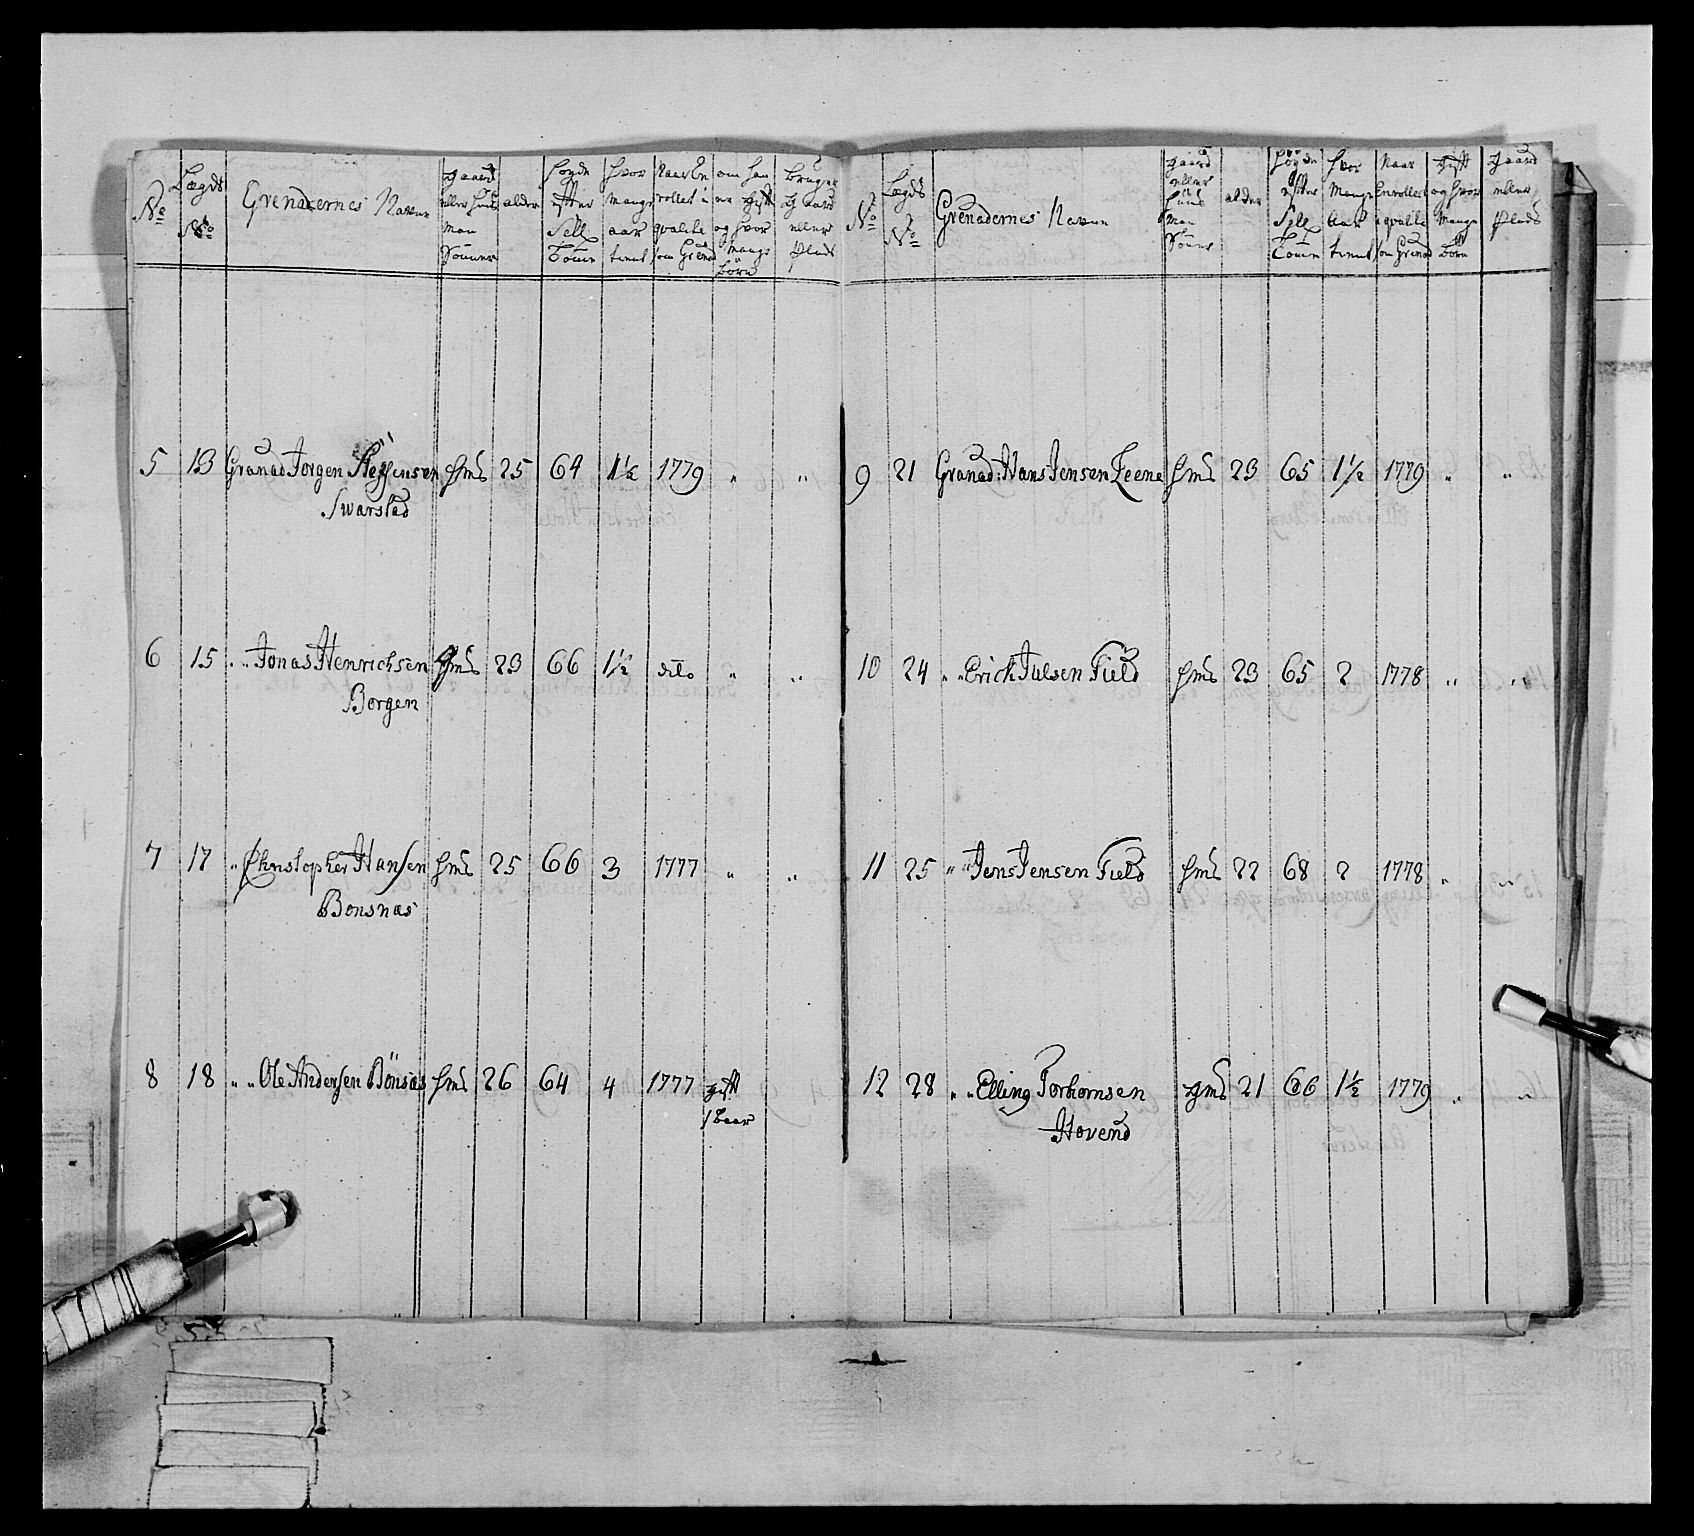 No Lægds No Grenadernes Navne gaard eller Huus man Sönner alder Høyde effter Sell. Tomm hvor mange aar tient Naar En rollet i qvalite som Grenad om han er gift og hvor mange Börn bruger Gaard eller Plads
5 13 Granad Jorgen Steffensen hms 25 64 1½ 1779 " "
Swarstad
6 15 " " Jonas Henrichsen hms 23 66 1½ dito " "
Borgen
7 17 " Christopher Hansen hms 25 66 3 1777 " "
Bonsnæs
8 18 " " Ole Andersen Bönsnæs hms 26 64 4 1777 gift
1 Baar
No Lægds No Grenadernes Navne gaard eller Huus man Sönner alder Høyde effter Sell. Tomm hvor Mange Aar tient Naar Enrollet i qvalite som Grenad gift og hvor Mange Börn gaard eller Plads
9 21 Granad: Hans Jensen Leene hms 23 65 1½ 1779 " "
10 24 " " Erich Julsen Field hms 23 65 2 1778 " "
11 25 " " Jens Jensen Field hms 22 68 2 1778 " "
12 28 " " Elling Torbiornsen gms 21 66 1½ 1779 " "
Hovend